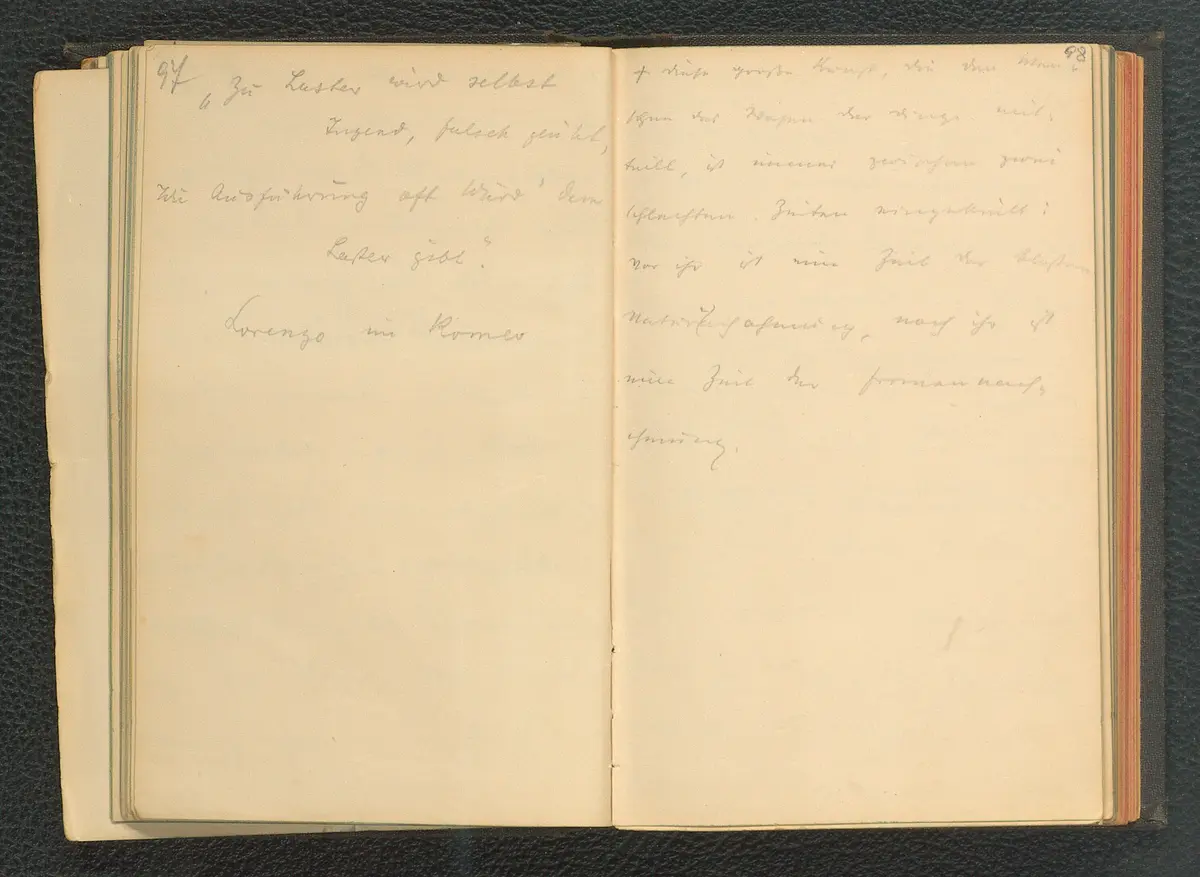 97
„Zu Laster wird selbst
Tugend, falsch geübt,
Wie Ausführung oft Würd' dem
Laster gibt."
Lorenzo in Romeo
98
+ diese große Kunst, die den Men-
schen das Wesen der Dinge mit-
teilt, ist immer zwischen zwei
schlechten Zeiten eingekeilt:
vor ihr ist eine Zeit der bloßen
Naturnachahmung, nach ihr ist
eine Zeit der Formennach-
ahmung.